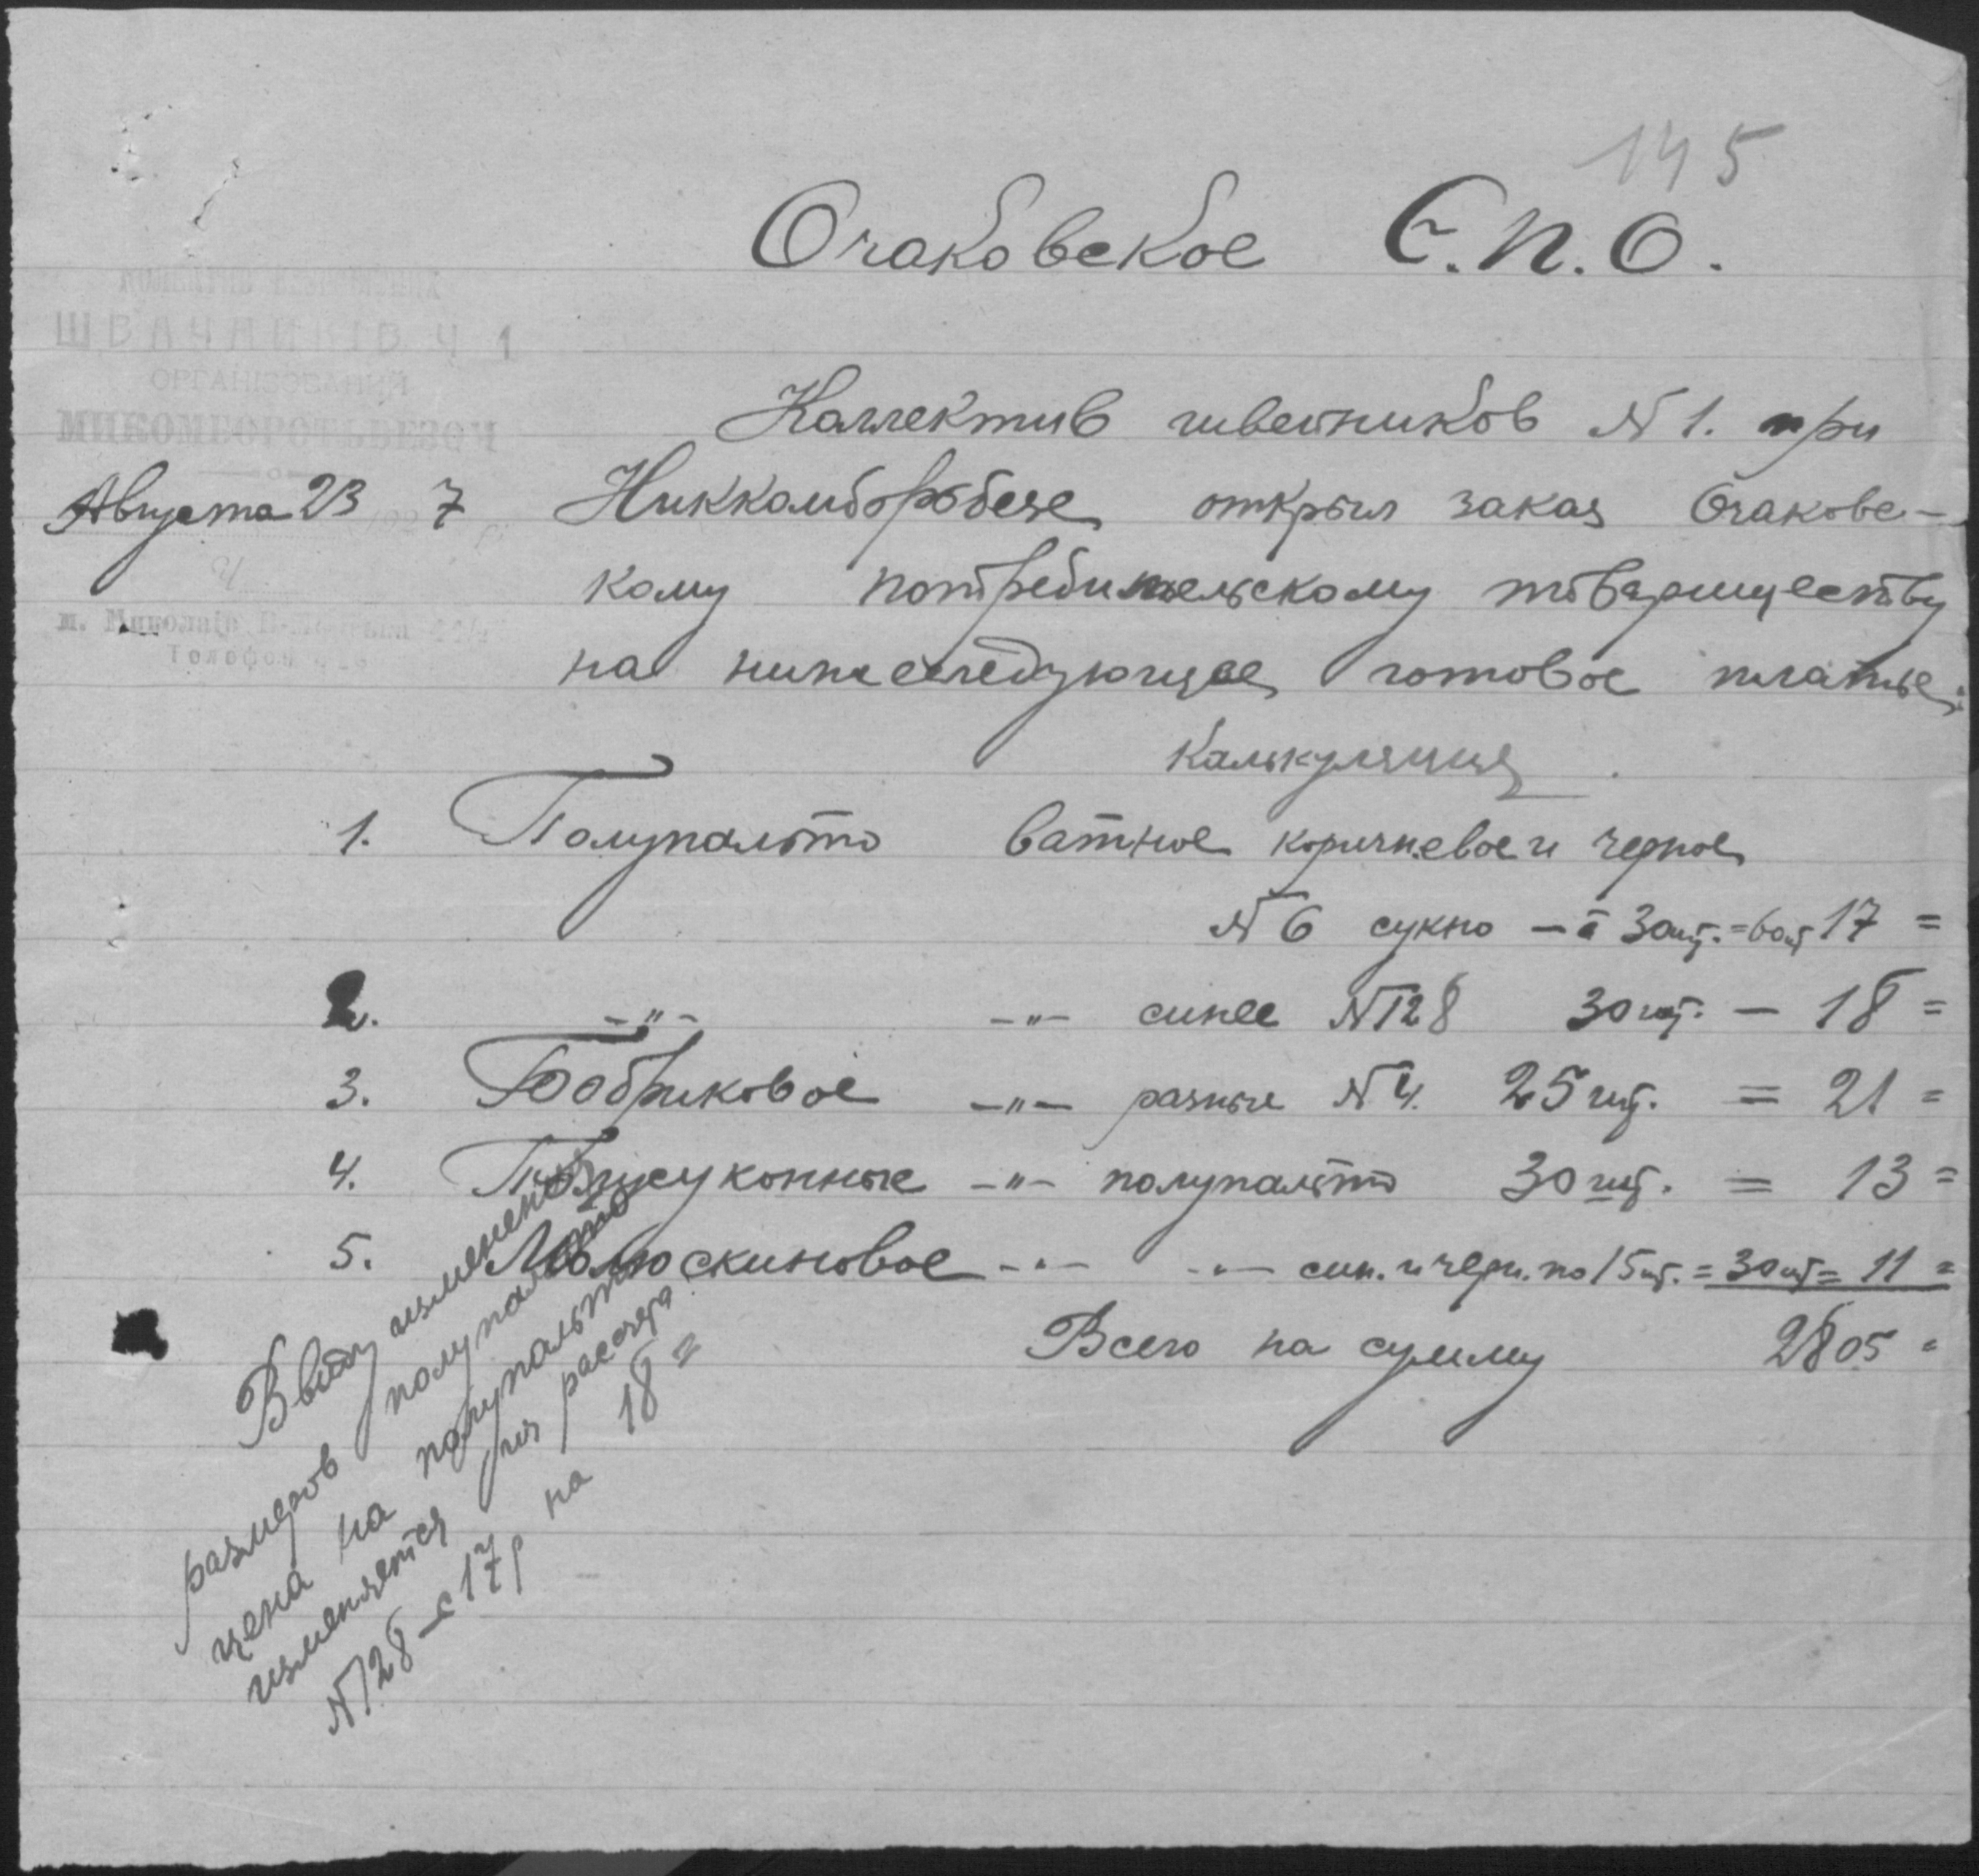 145
Очаковское Е.П.О.
ШВАЧНИКІВ Ч 1
ОРГАНІЗОВАНИЙ
МИКОМБОРОТЬБЕЗОЧ
Коллектив швейников N 1. при
Августа 23 7 Никкомборьбезе открыл заказ Очаковс-
кому потребительскому товариществу
на нижеследующее готовое платье:
Калькуляция
1. Полупальто ватное коричневое и черное
N 6 сукно – а 30шт. = 60шт 17 =
2. -"- -"- синее N128 30 шт. – 18 =
3. Бобриковое -"- разные N 4. 25 шт. = 21 =
4. Полусуконные -"- полупальто 30 шт. = 13 =
5. Молюскиновое -"- -"- син. и черн. по 15 шт. = 30 шт = 11 =
Всего на сумму 2805 =
Ввиду изменения
размеров полупальто
цена на полупальто
изменяется рассчета
N128 – с 17р на 18 =
м. Миколаїв
Телефон